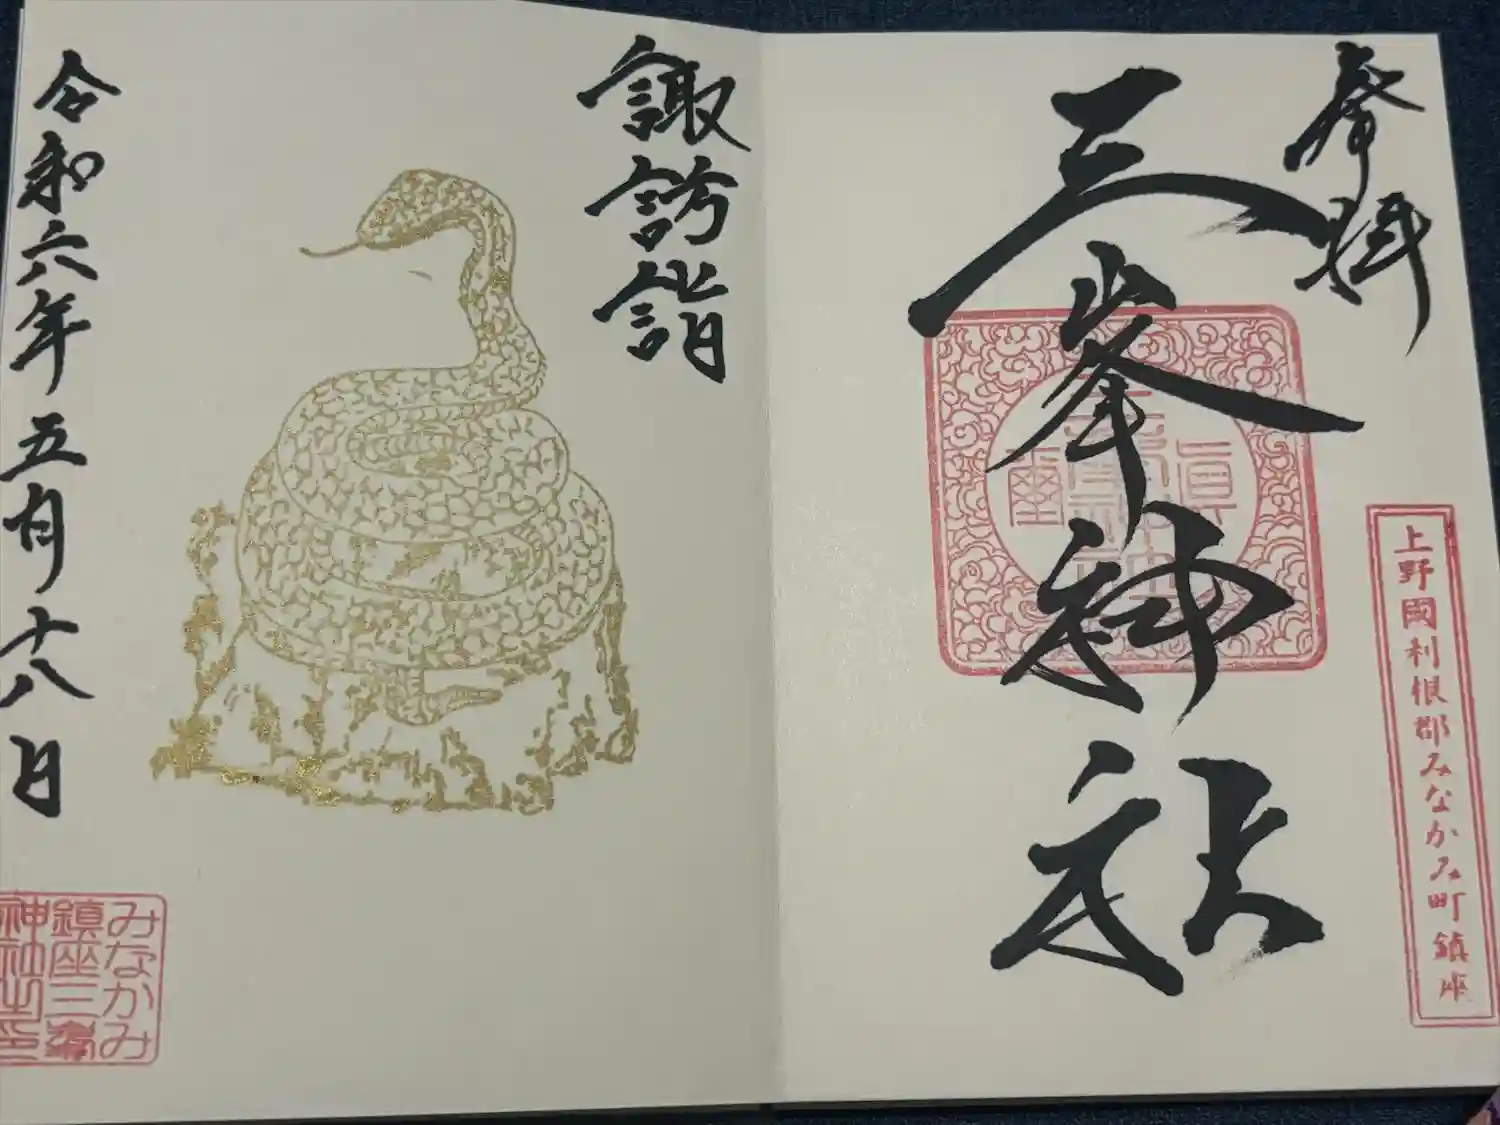 奉拝
三峯神社
上野國利根郡みなかみ町鎮座
諏訪詣
令和六年五月十八日
みなかみ
鎮座三峯
神社之印